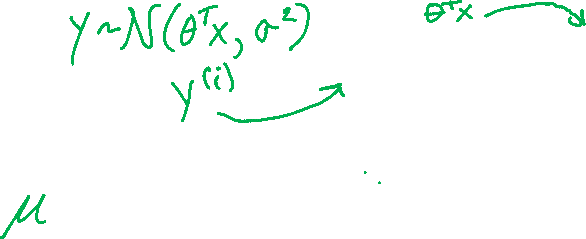 y ~ N(θᵀx, σ²) θᵀx
y⁽ⁱ⁾
μ